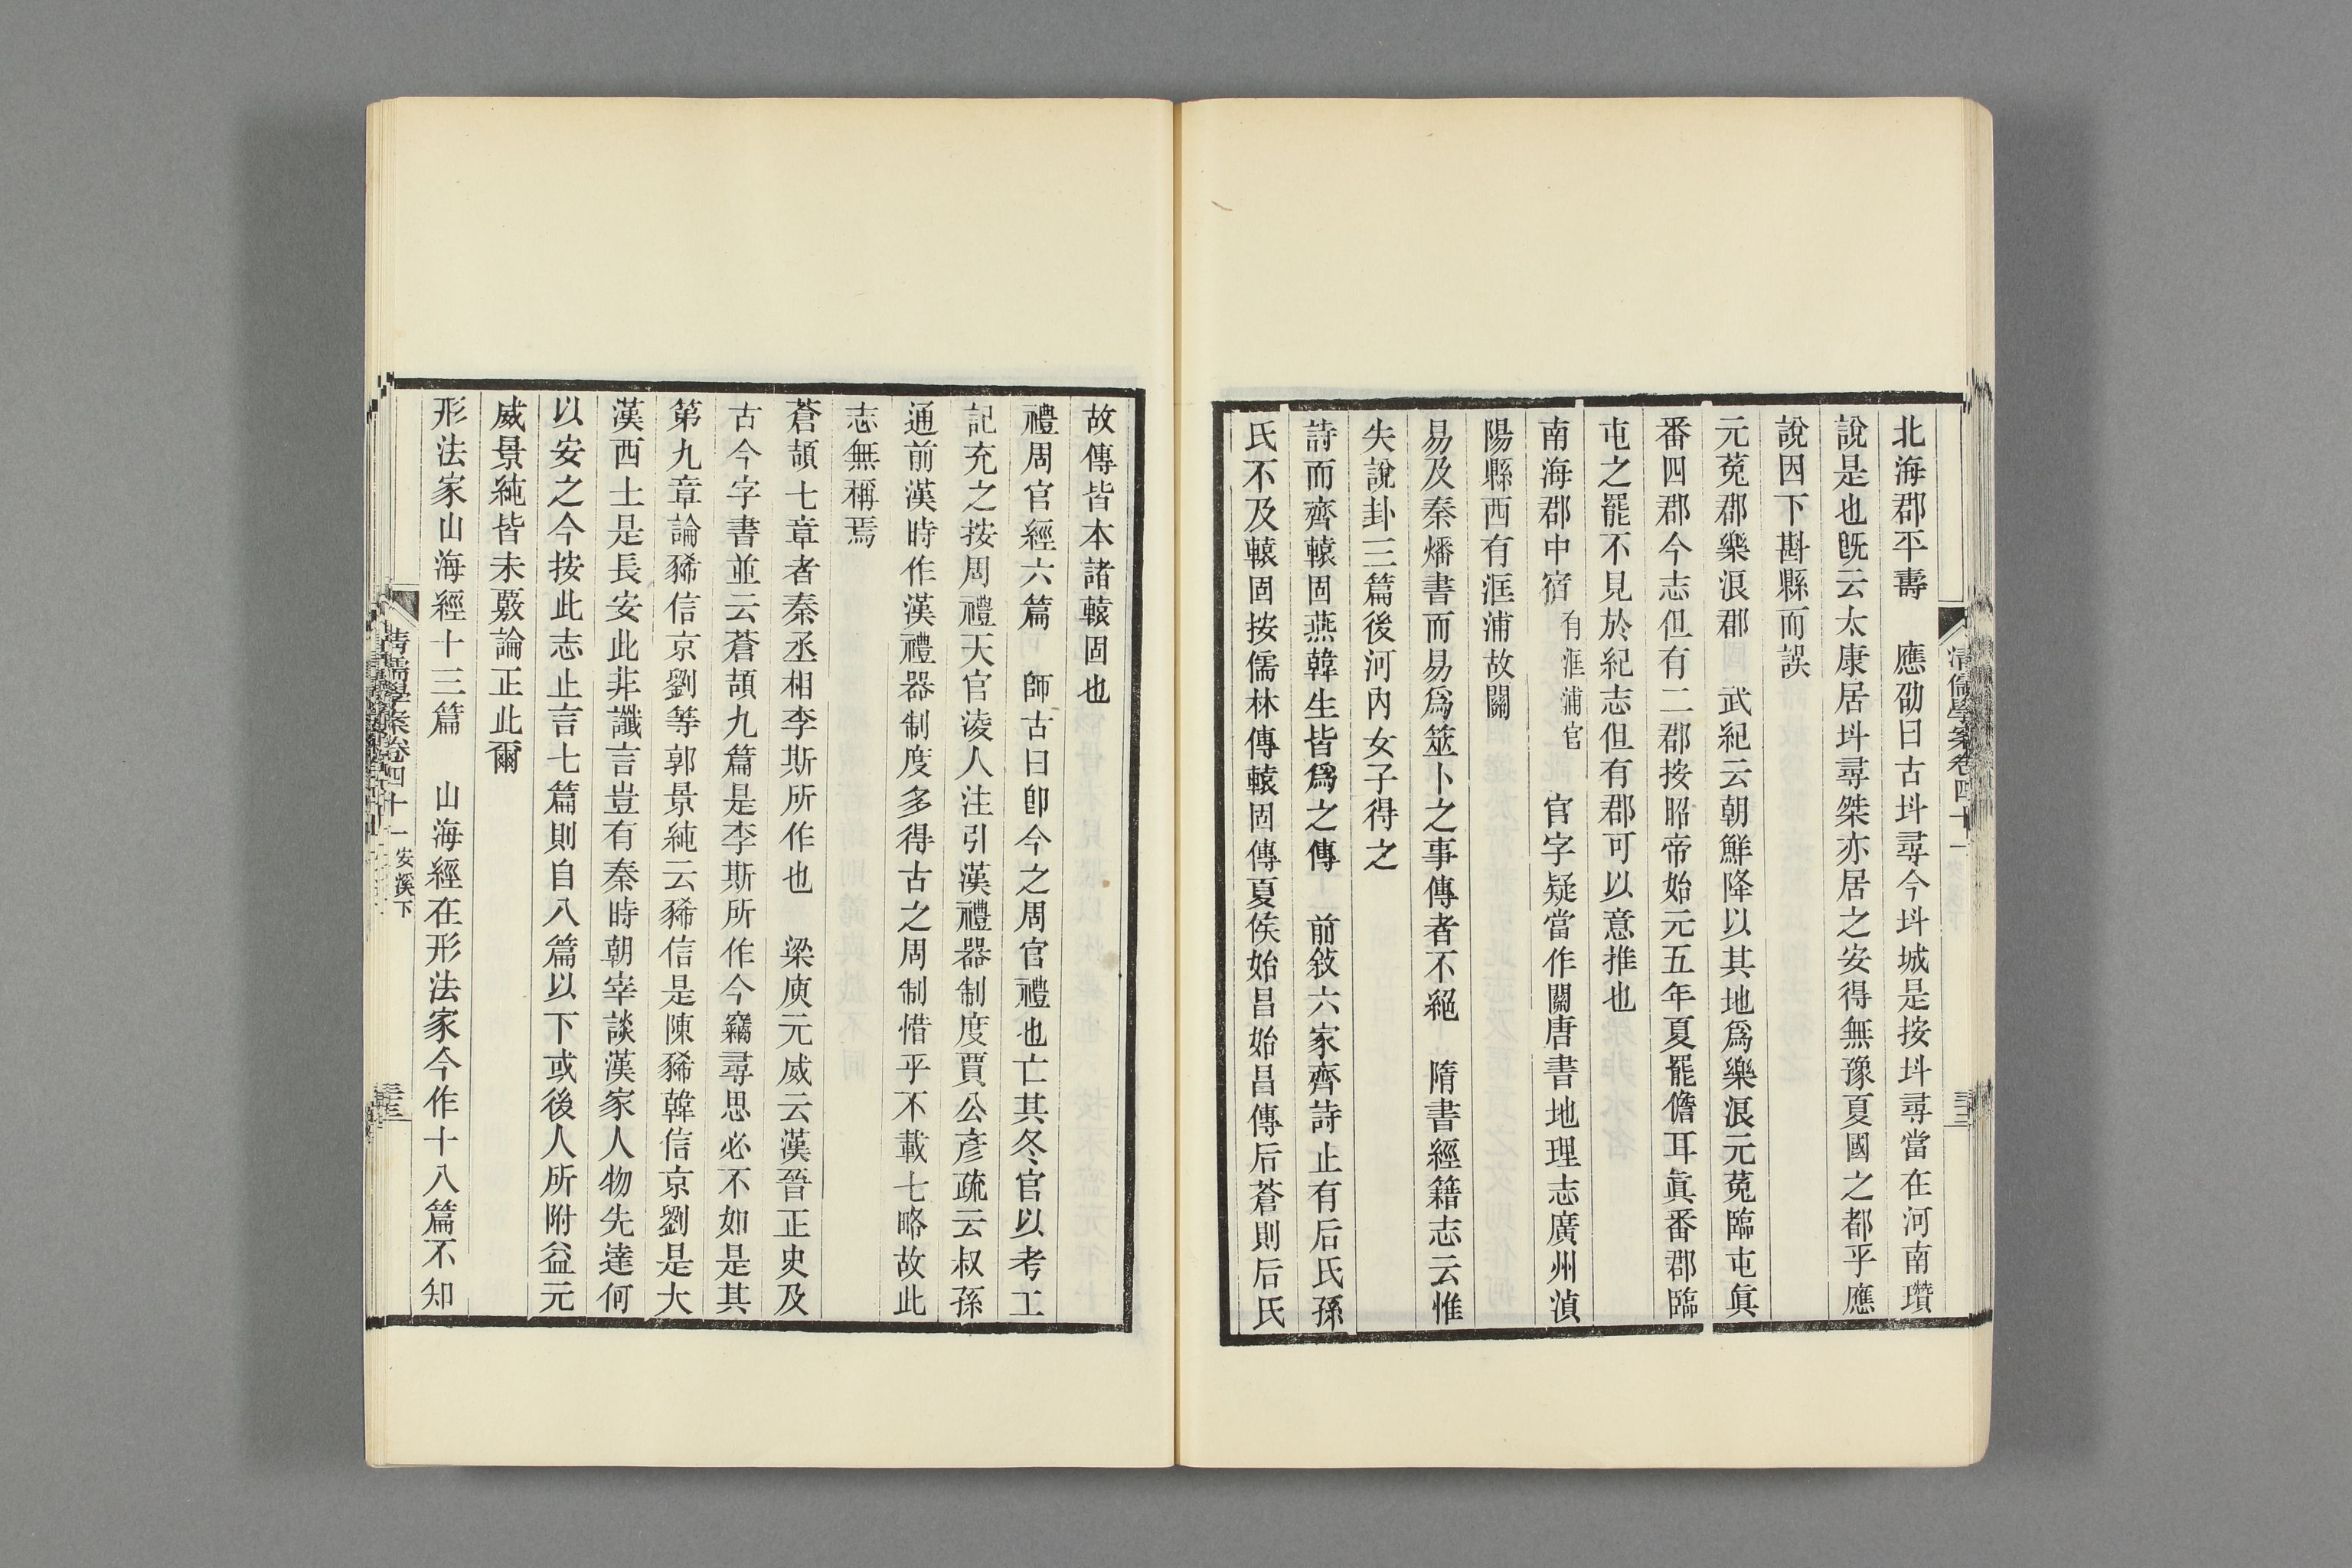 北海郡平壽　應劭曰古㪷尋今㪷城是按㪷尋當在河南瓚
說是也旣云太康居㪷尋桀亦居之安得無豫夏國之都乎應
說因下斟縣而誤
元菟郡樂浪郡　武紀云朝鮮降以其地爲樂浪元菟臨屯眞
番四郡今志但有二郡按昭帝始元五年夏罷儋耳眞番郡臨
屯之罷不見於紀志但有郡可以意推也
南海郡中宿有洭浦官　官字疑當作關唐書地理志廣州湞
陽縣西有洭浦故關
易及秦燔書而易爲筮卜之事傳者不絕　隋書經籍志云惟
失說卦三篇後河內女子得之
詩而齊轅固燕韓生皆爲之傳　前敘六家齊詩止有后氏孫
氏不及轅固按儒林傳轅固傳夏侯始昌始昌傳后蒼則后氏
故傳皆本諸轅固也
禮周官經六篇　師古曰卽今之周官禮也亡其冬官以考工
記充之按周禮天官淩人注引漢禮器制度賈公彥疏云叔孫
通前漢時作漢禮器制度多得古之周制惜乎不載七略故此
志無稱焉
蒼頡七章者秦丞相李斯所作也　梁庾元威云漢晉正史及
古今字書並云蒼頡九篇是李斯所作今竊尋思必不如是其
第九章論豨信京劉等郭景純云豨信是陳豨韓信京劉是大
漢西土是長安此非讖言豈有秦時朝宰談漢家人物先達何
以安之今按此志止言七篇則自八篇以下或後人所附益元
威景純皆未覈論正此爾
形法家山海經十三篇　山海經在形法家今作十八篇不知
清儒學案卷四十一　安溪下